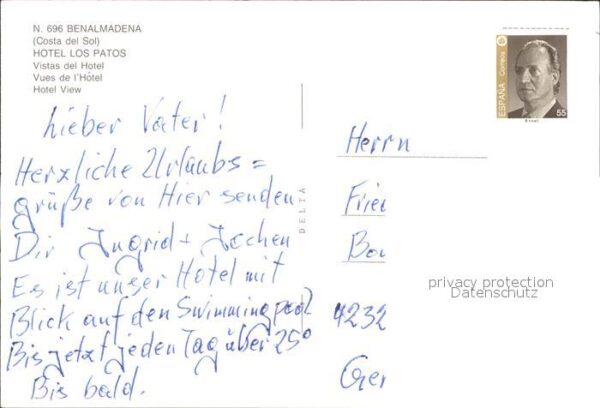 N. 696 BENALMADENA
(Costa del Sol)
HOTEL LOS PATOS
Vistas del Hotel
Vues de l'Hôtel
Hotel View
Lieber Vater!
Herzliche Urlaubs=
grüße von Hier senden
Dir Ingrid + Jochen
Es ist unser Hotel mit
Blick auf den Swimmingpool
Bis jetzt jeden Tag über 25°
Bis bald.
DELTA
ESPAÑA
Correos
55
Herrn
Frie
Bou
4232
Ger
privacy protection
Datenschutz